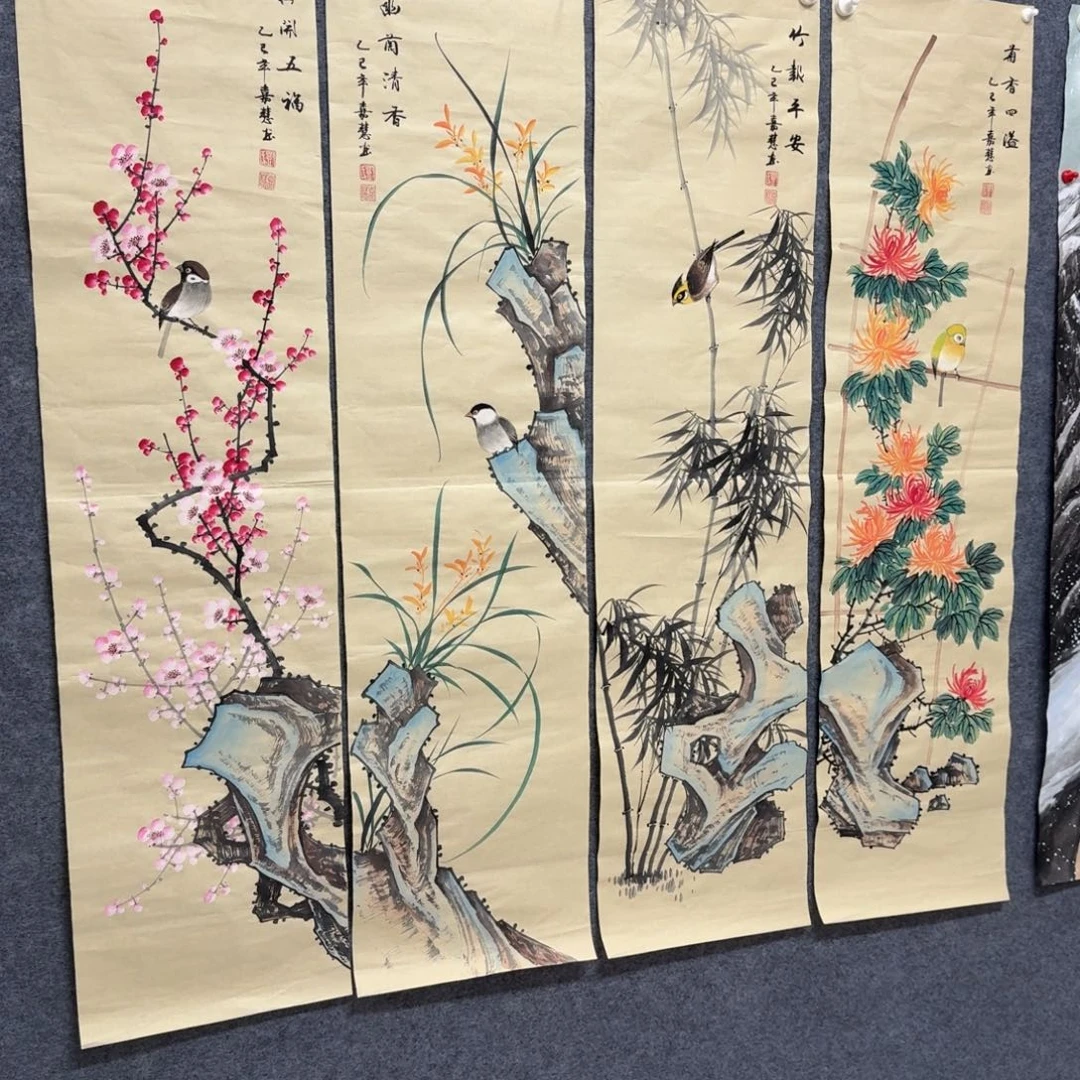 開五福
乙巳年嘉慧畫
幽蘭清香
乙巳年嘉慧畫
竹報平安
乙巳年嘉慧畫
菊香四溢
乙巳年嘉慧畫